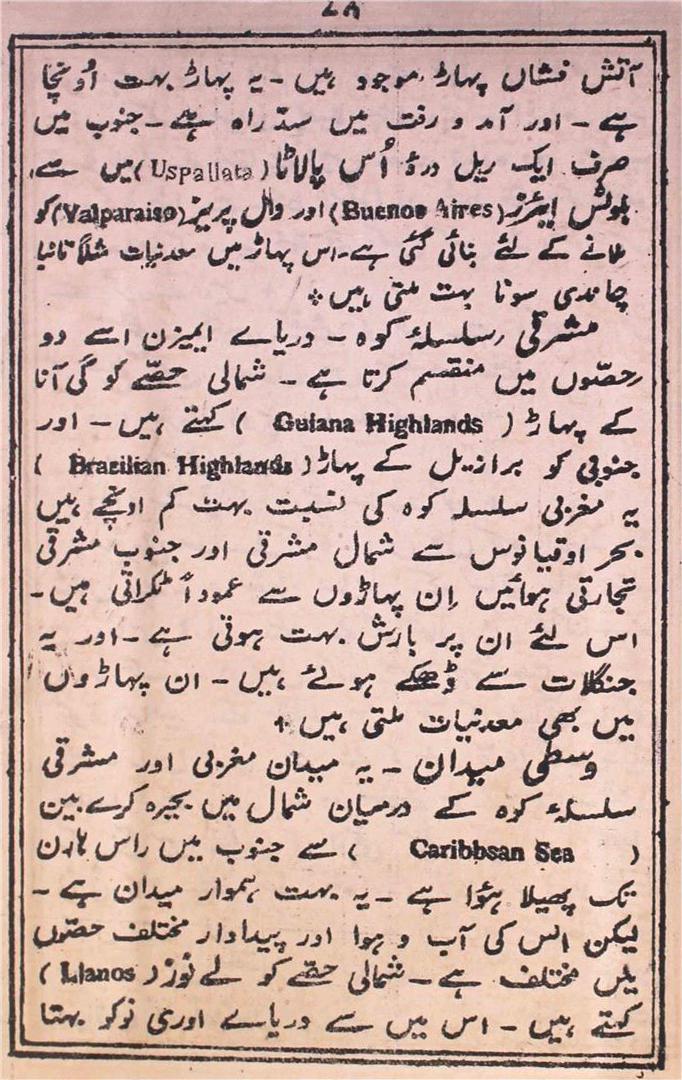 ۲۸
آتش فشاں پہاڑ موجود ہیں - یہ پہاڑ بہت اُونچا
ہے - اور آمد و رفت میں سدّ راہ ہے - جنوب میں
صرف ایک ریل درۂ اُس پالاٹا (Uspallata) میں سے
بوئنس ایئرز (Buenos Aires) اور وال پریزو (Valparaiso) کو
ملانے کے لئے بنائی گئی ہے - اس پہاڑ میں معدنیات مثلاً تانبا
چاندی سونا بہت ملتی ہیں *
مشرقی سلسلۂ کوہ - دریاے ایمیزن اسے دو
حصّوں میں منقسم کرتا ہے - شمالی حصّے کو گی آنا
کے پہاڑ (Guiana Highlands) کہتے ہیں - اور
جنوبی کو برازیل کے پہاڑ (Brazilian Highlands)
یہ مغربی سلسلہ کوہ کی نسبت بہت کم اونچے ہیں
بحر اوقیانوس سے شمال مشرقی اور جنوب مشرقی
تجارتی ہوائیں اِن پہاڑوں سے عموداً ٹکراتی ہیں -
اس لئے ان پر بارش بہت ہوتی ہے - اور یہ
جنگلات سے ڈھکے ہوئے ہیں - ان پہاڑوں
میں بھی معدنیات ملتی ہیں *
وسطی میدان - یہ میدان مغربی اور مشرقی
سلسلۂ کوہ کے درمیان شمال میں بحیرہ کرے بین
(Caribbsan Sea) سے جنوب میں راس ہارن
تک پھیلا ہؤا ہے - یہ بہت ہموار میدان ہے -
لیکن اس کی آب و ہوا اور پیداوار مختلف حصّوں
میں مختلف ہے - شمالی حصّے کو لے نوز (Llanos)
کہتے ہیں - اس میں سے دریاے اوری نوکو بہتا